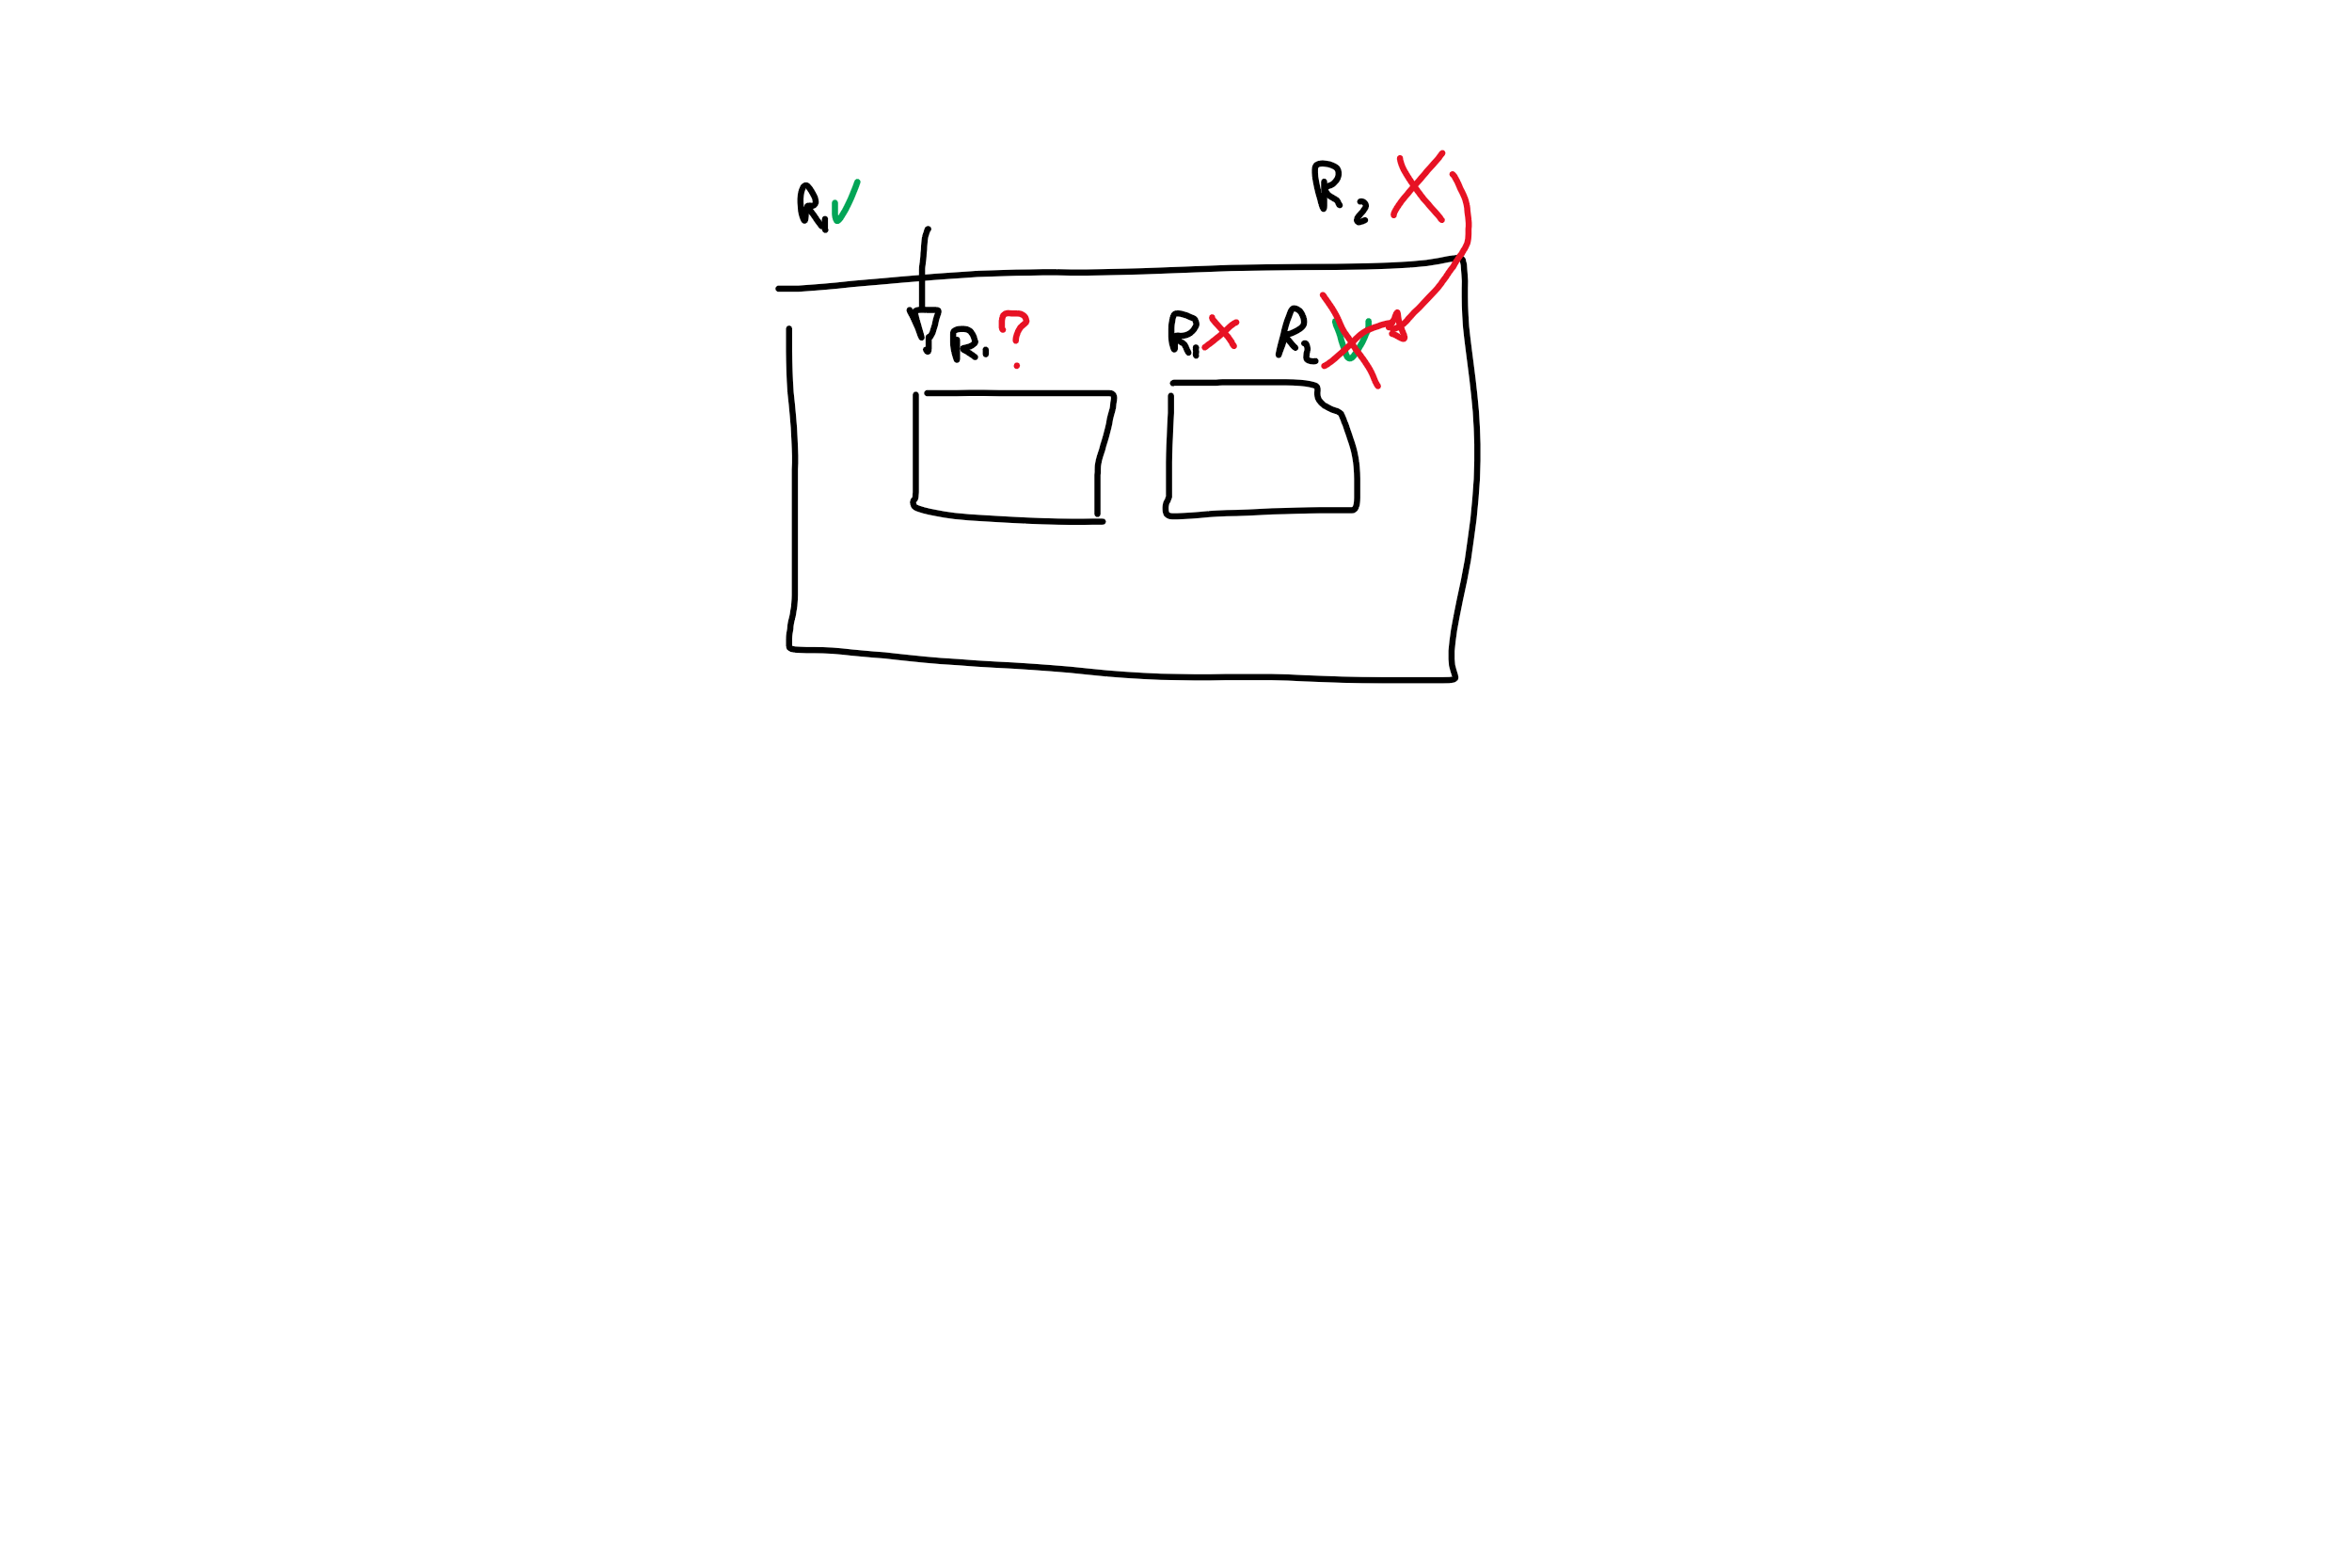 R1 ✓ R2 X
R1 ? R1 X R2